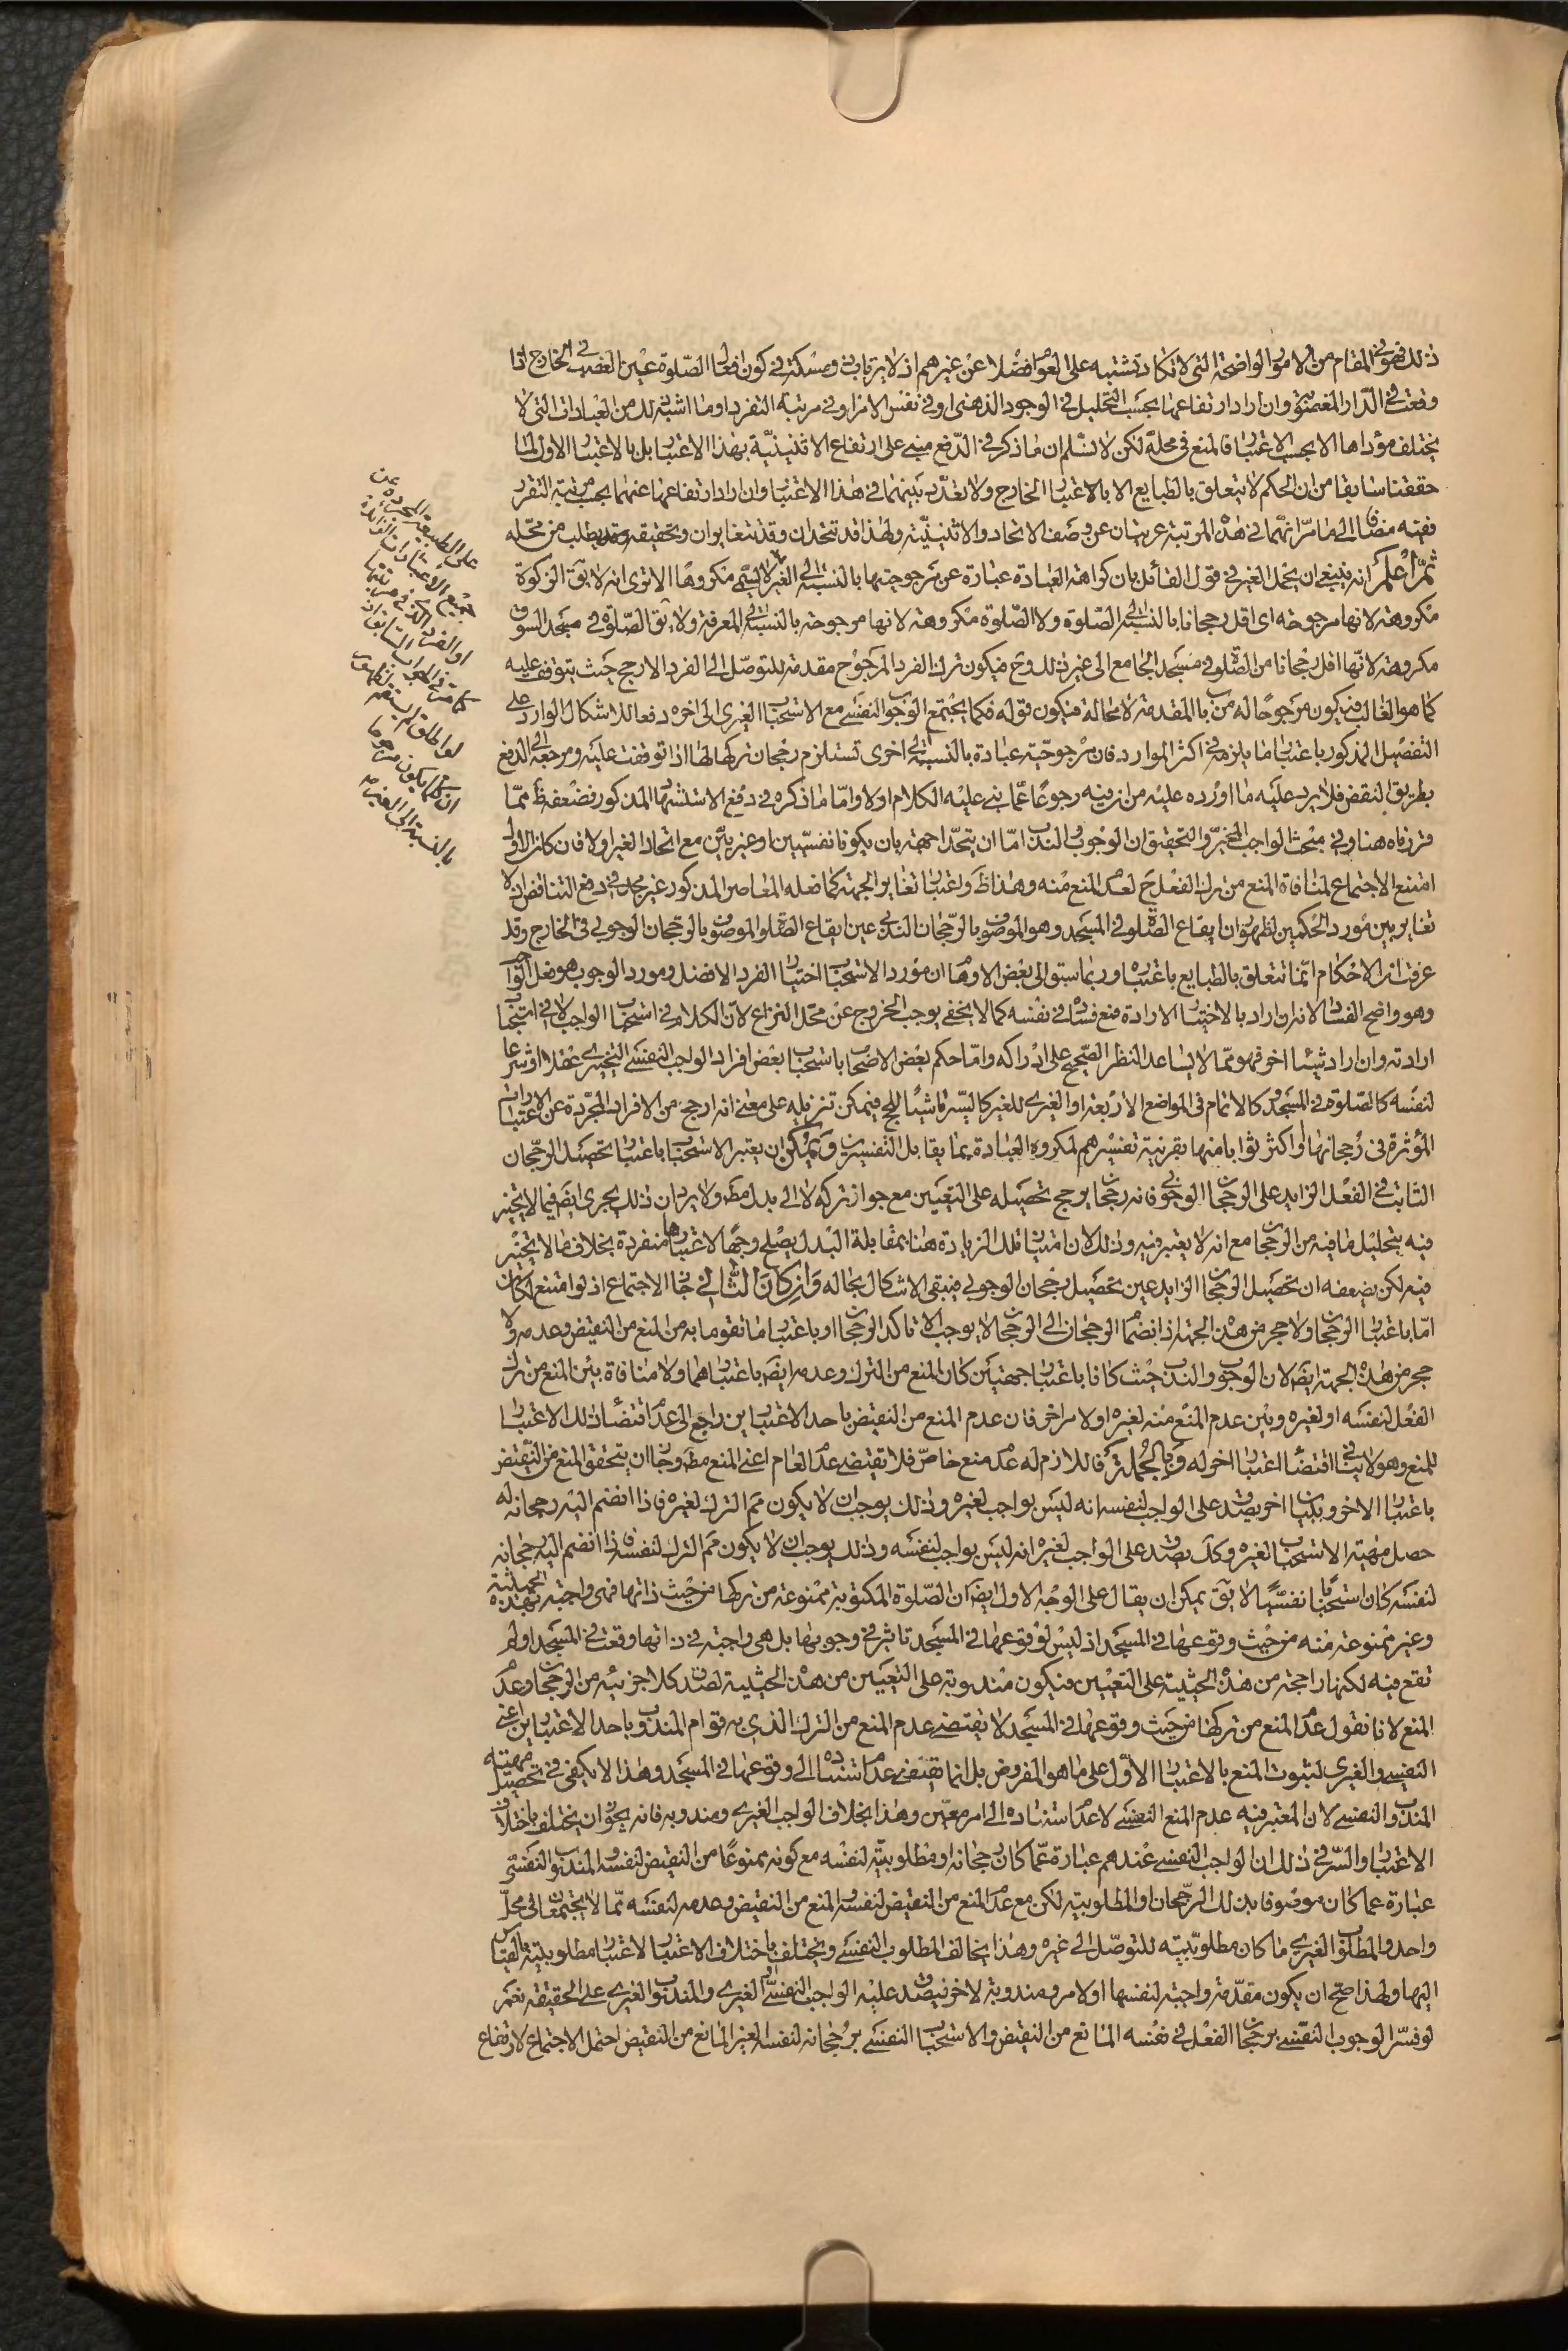 ذلك فهو في المقام من الامور الواضحة التى لا تكاد تشتبه على العوام فضلا عن غيرهم اذ لا يرتاب ذو مسكة في كون افعال الصّلوة عين الغصب في الخارج اذا
وقعت في الدّار المغصوبة وان اراد ارتفاعها بحسب التحليل في الوجود الذهنى او في نفس الامر او في مرتبة التقرر او ما اشبه ذلك من العبارات التى لا
يختلف مؤداها الا بحسب الاعتبار فالمنع في محلّه لكن لا نسلم ان ما ذكر في الدّفع مبنى على ارتفاع الاثنينيّة بهذا الاعتبار بل بالاعتبار الاول لما
حققنا سابقا من ان الحكم لا يتعلق بالطبايع الا بالاعتبار الخارج ولا تعدّد بينهما في هذا الاعتبار وان اراد ارتفاعها عنهما بحسب مرتبة التقرر
ففيه مضافا الى ما مرّ انهما في هذه المرتبة عريتان عن وصف الاتحاد والاثنينيّة ولهذا قد تتحدان وقد تتغايران وتحقيقه يطلب من محله
ثمّ اعلم انه ينبغي ان يحمل الغير في قول القائل بان كراهة العبادة عبارة عن مرجوحيتها بالنسبة الى الغير لا يسمى مكروها الا ترى انه لا يق الزكوة
مكروهة لانها مرجوحة اى اقل رجحانا بالنسبة الى الصلوة ولا الصّلوة مكروهة لانها مرجوحة بالنسبة الى المعرفة ولا يق الصّلوة في مسجد السوق
مكروهة لانّها اقل رجحانا من الصّلوة في مسجد الجامع الى غير ذلك وح فيكون ترك الفرد المرجوح مقدمة للتوصّل الى الفرد الارجح حيث يتوقف عليه
كما هو الغالب فيكون مرجوحا له من باب المقدمة لا محالة فيكون قوله فكما يجتمع الوجوب النفسى مع الاستحباب الغيرى الى اخره دفعا للاشكال الوارد على
التفصيل المذكور باعتبار ما يلزمه في اكثر الموارد فان مرجوحيّة عبادة بالنسبة الى اخرى تستلزم رجحان تركها لها اذا توقفت عليه ومرجعه الى الدفع
بطريق النقض فلا يرد عليه ما اورده عليه من ان فيه رجوعا عمّا بنى عليه الكلام اولا وامّا ما ذكره في دفع الاستشهاد المذكور فضعفه ظ ممّا
قررناه هنا وفي مبحث الواجب المخيرّ والتحقيق ان الوجوب والندب امّا ان يتحدّا جهة بان يكونا نفسيّين او غيريّين مع اتحاد الغير او لا فان كان الاول
امتنع الاجتماع لمنافاة المنع من ترك الفعل ح لعدم المنع منه وهذا ظ واعتبار تغاير الجهة كما فعله المعاصر المذكور غير مجد في دفع التناقض اذ لا
تغاير بين مورد الحكمين لظهور ان ايقاع الصّلوة في المسجد وهو الموصوف بالرّجحان الندبى عين ايقاع الصّلوة الموصوف بالرجحان الوجوبى في الخارج وقد
عرفت ان الاحكام انّما تتعلق بالطبايع باعتباره وربما سبق الى بعض الاوهام ان مورد الاستحباب اختيار الفرد الافضل ومورد الوجوب هو فعل الواجب
وهو واضح الفساد لانه ان اراد بالاختيار الارادة فمع فساده في نفسه كما لا يخفى يوجب الخروج عن محّل النزاع لانّ الكلام في استحباب الواجب لا في استحباب
ارادته وان اراد شيئا اخر فهو ممّا لا يساعد النظر الصّحيح على ادراكه وامّا حكم بعض الاصحاب باستحباب بعض افراد الواجب النفسى التخييرى عقلا او شرعا
لنفسه كالصّلوة في المسجد وكالاتمام في المواضع الاربعة او الغيرى للغير كالسّير ماشيا للحج فيمكن تنزيله على معنى انه ارجح من الافراد المجرّدة عن الاعتبارات
المؤثرة في رجحانها او اكثر ثوابا منها بقرينة تفسيرهم لمكروه العبادة بما يقابل التفسيرين ويمكن ان يعتبر الاستحباب باعتبار تحصيل الرجحان
الثابت في الفعل الزايد على الرجحان الوجوبى فانه رجحان يرجح تحصيله على التعيين مع جواز تركه لا الى بدل مط ولا يرد ان ذلك يجرى ايض فيما لا تخيير
فيه بتحليل ما فيه من الرجحان مع انه لا يعتبر فيه وذلك لان اتيان تلك الزيادة هنا بمقابلة البدل يصلح وجها لاعتبارها منفردة بخلاف ما لا تخيير
فيه لكن يضعفه ان تحصيل الرجحان الزايد عين تحصيل رجحان الوجوبى فيبقى الاشكال بحاله وان كان الثانى جاز الاجتماع اذ لو امتنع لكان
امّا باعتبار الرجحان ولا حجر من هذه الجهة اذ انضمام الرجحان الى الرجحان لا يوجب الا تاكد الرجحان او باعتبار ما تقوما به من المنع من النقيض وعدمه ولا
حجر من هذه الجهة ايض لان الوجوب والندب حيث كانا باعتبار جهتين كان المنع من الترك وعدمه ايض باعتبارهما ولا منافاة بين المنع من ترك
الفعل لنفسه او لغيره وبين عدم المنع منه لغيره او لامر اخر فان عدم المنع من النقيض باحد الاعتبارين راجع الى عدم اقتضاء ذلك الاعتبار
للمنع وهو لا ينافى اقتضاء اعتبار اخر له وبالجملة فاللازم له عدم منع خاصّ فلا يقتضى عدم العام اعنى المنع مط وجاز ان يتحقق المنع من النقيض
باعتبار الاخر وببيان اخر يصدق على الواجب لنفسه انه ليس بواجب لغيره وذلك يوجب ان لا يكون مم الترك لغيره فاذا انضم اليه رجحانه له
حصل مهية الاستحباب لغيره وكذ يصدق على الواجب لغيره انه ليس بواجب لنفسه وذلك يوجب ان لا يكون مم الترك لنفسه فاذا انضم اليه رجحانه
لنفسه كان استحبابا نفسيّا لا يق يمكن ان يقال على الوجه الاول ايض ان الصّلوة المكتوبة ممنوعة من تركها من حيث ذاتها فهى واجبة بهذه الحيثية
وغير ممنوعة منه من حيث وقوعها في المسجد اذ ليس لوقوعها في المسجد تاثير في وجوبها بل هى واجبة في ذاتها وقعت في المسجد او لم
تقع فيه لكنها راجحة من هذه الحيثية على التعيين فيكون مندوبة على التعيين من هذه الحيثية لصدق كلا جزئيه من الرجحان وعدم
المنع لانا نقول عدم المنع من تركها من حيث وقوعها في المسجد لا يقتضى عدم المنع من الترك الذى به قوام المندوب باحد الاعتبارين اعنى
النفسى والغيرى لثبوت المنع بالاعتبار الاوّل على ما هو المفروض بل انما يقتضى عدم استناده الى وقوعها في المسجد وهذا لا يكفى في تحصيل مهية
المندوب النفسى لان المعتبر فيه عدم المنع النفسى لا عدم استناده الى امر معيّن وهذا بخلاف الواجب الغيرى ومندوبه فانه يجوز ان يختلف باختلاف
الاعتبار والسّر في ذلك ان الواجب النفسى عندهم عبارة عمّا كان رجحانه او مطلوبيّته لنفسه مع كونه ممنوعا من النقيض لنفسه والمندوب النفسى
عبارة عما كان موصوفا بذلك الرّجحان او المطلوبية لكن مع عدم المنع من النقيض لنفسه والمنع من النقيض وعدمه لنفسه ممّا لا يجتمعان في محلّ
واحد والمطلوب الغيرى ما كان مطلوبيّته للتوصّل الى غيره وهذا يخالف المطلوب النفسى ويختلف باختلاف الاغيار لاعتبار مطلوبيّته بالقياس
اليها ولهذا صحّ ان يكون مقدّمة واجبة لنفسها او لامر ومندوبة لاخر فيصدق عليه الواجب النفسى او الغيرى والمندوب الغيرى على الحقيقة نعم
لو فسّر الوجوب النفسى برجحان الفعل في نفسه المانع من النقيض والاستحباب النفسى برجحانه لنفسه الغير المانع من النقيض احتمل الاجتماع لارتفاع
على الطبيعة المجردة عن
جميع الاعتبارات الزائدة
او الفرد الذى في مرتبتها
كما مر في الجواب السابق
ان كلما يكون مرجوحا
بالنسبة الى الغير